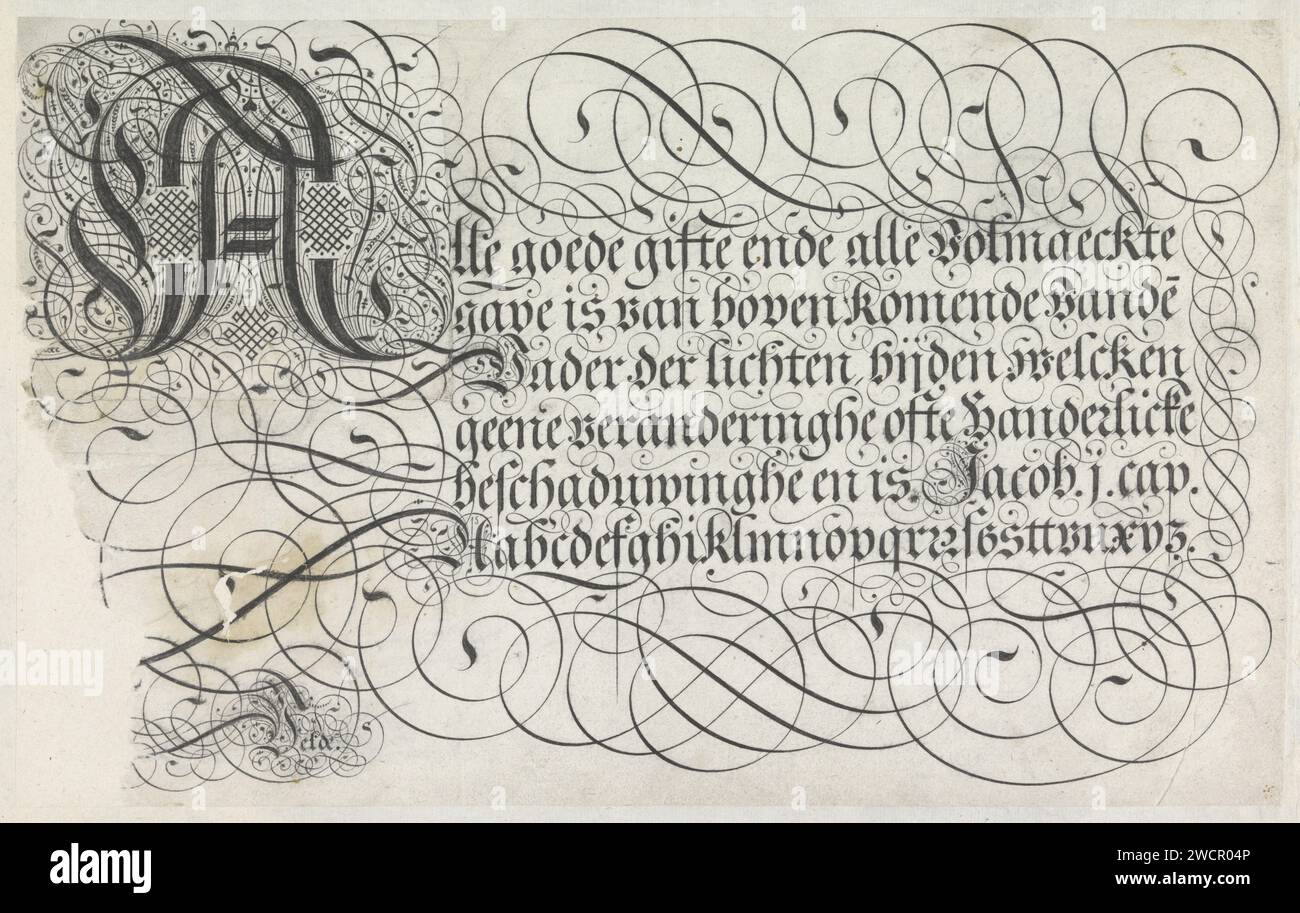 Alle goede gifte ende alle volmaeckte
gave is van boven komende vandē
Vader der lichten, bijden welcken
geene veranderinghe ofte
beschaduwinghe en is. Jacob. j. cap.
Aabcdefghiklmnopqrzsßsttvuxyz.
Velde.
alamy
Image ID: 2WCR04P
www.alamy.com